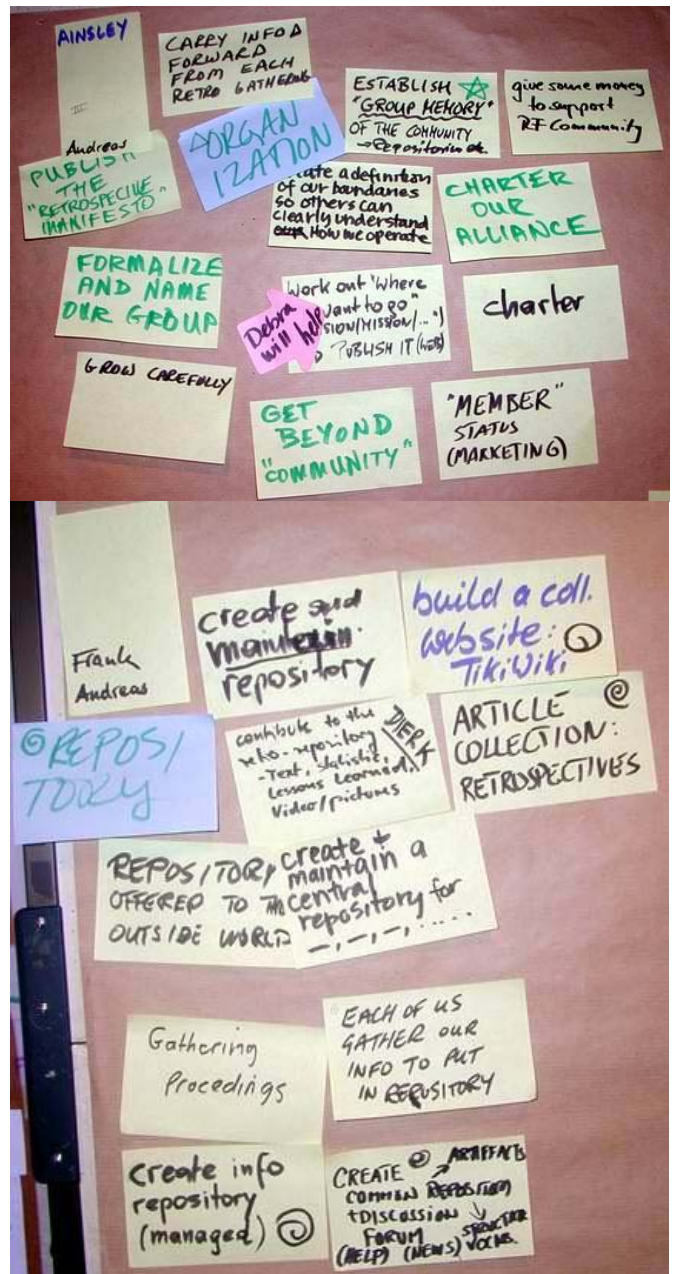 AINSLEY
Andreas
CARRY INFO
FORWARD
FROM EACH
RETRO GATHERING
ESTABLISH
"GROUP MEMORY"
OF THE COMMUNITY
→ Repositories etc.
give some money
to support
RF Community
PUBLISH
THE
"RETROSPECTIVE
MANIFESTO"
ORGAN
IZATION
ate a definition
of our boundaries
so others can
clearly understand
How we operate
CHARTER
OUR
ALLIANCE
FORMALIZE
AND NAME
OUR GROUP
Work out 'Where
want to go"
SION/MISSION/...")
PUBLISH IT (web)
Debra
will help
charter
GROW CAREFULLY
GET
BEYOND
"COMMUNITY"
"MEMBER"
STATUS
(MARKETING)
Frank
Andreas
create and
maintain
repository
build a coll.
website:
TikiWiki
REPOSI
TORY
contribute to the
retro-repository
- Text, statistic,
Lessons Learned,
Video/pictures
DIERK
ARTICLE
COLLECTION:
RETROSPECTIVES
REPOSITORY
OFFERED TO THE
OUTSIDE WORLD
create +
maintain a
central
repository for
-, -, -, .....
Gathering
Procedings
EACH OF US
GATHER OUR
INFO TO PUT
IN REPOSITORY
create info
repository
(managed)
CREATE ARTIFACTS
COMMON REPOSITORY
+DISCUSSION
FORUM STRUCTURE
(HELP) (NEWS) VOCAB.